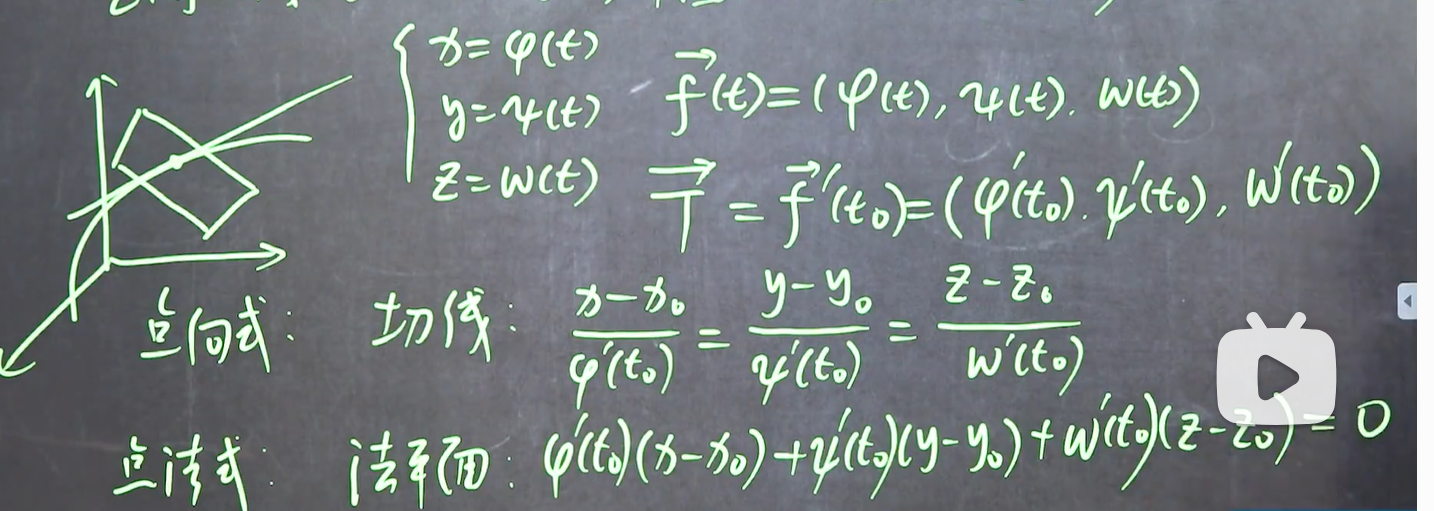 x=φ(t)
y=ψ(t)
z=w(t)
f⃗(t)=(φ(t), ψ(t). w(t))
T⃗ = f⃗'(t₀)=(φ'(t₀). ψ'(t₀), w'(t₀))
点向式: 切线: (x-x₀)/φ'(t₀) = (y-y₀)/ψ'(t₀) = (z-z₀)/w'(t₀)
点法式: 法平面: φ'(t₀)(x-x₀)+ψ'(t₀)(y-y₀)+w'(t₀)(z-z₀)=0